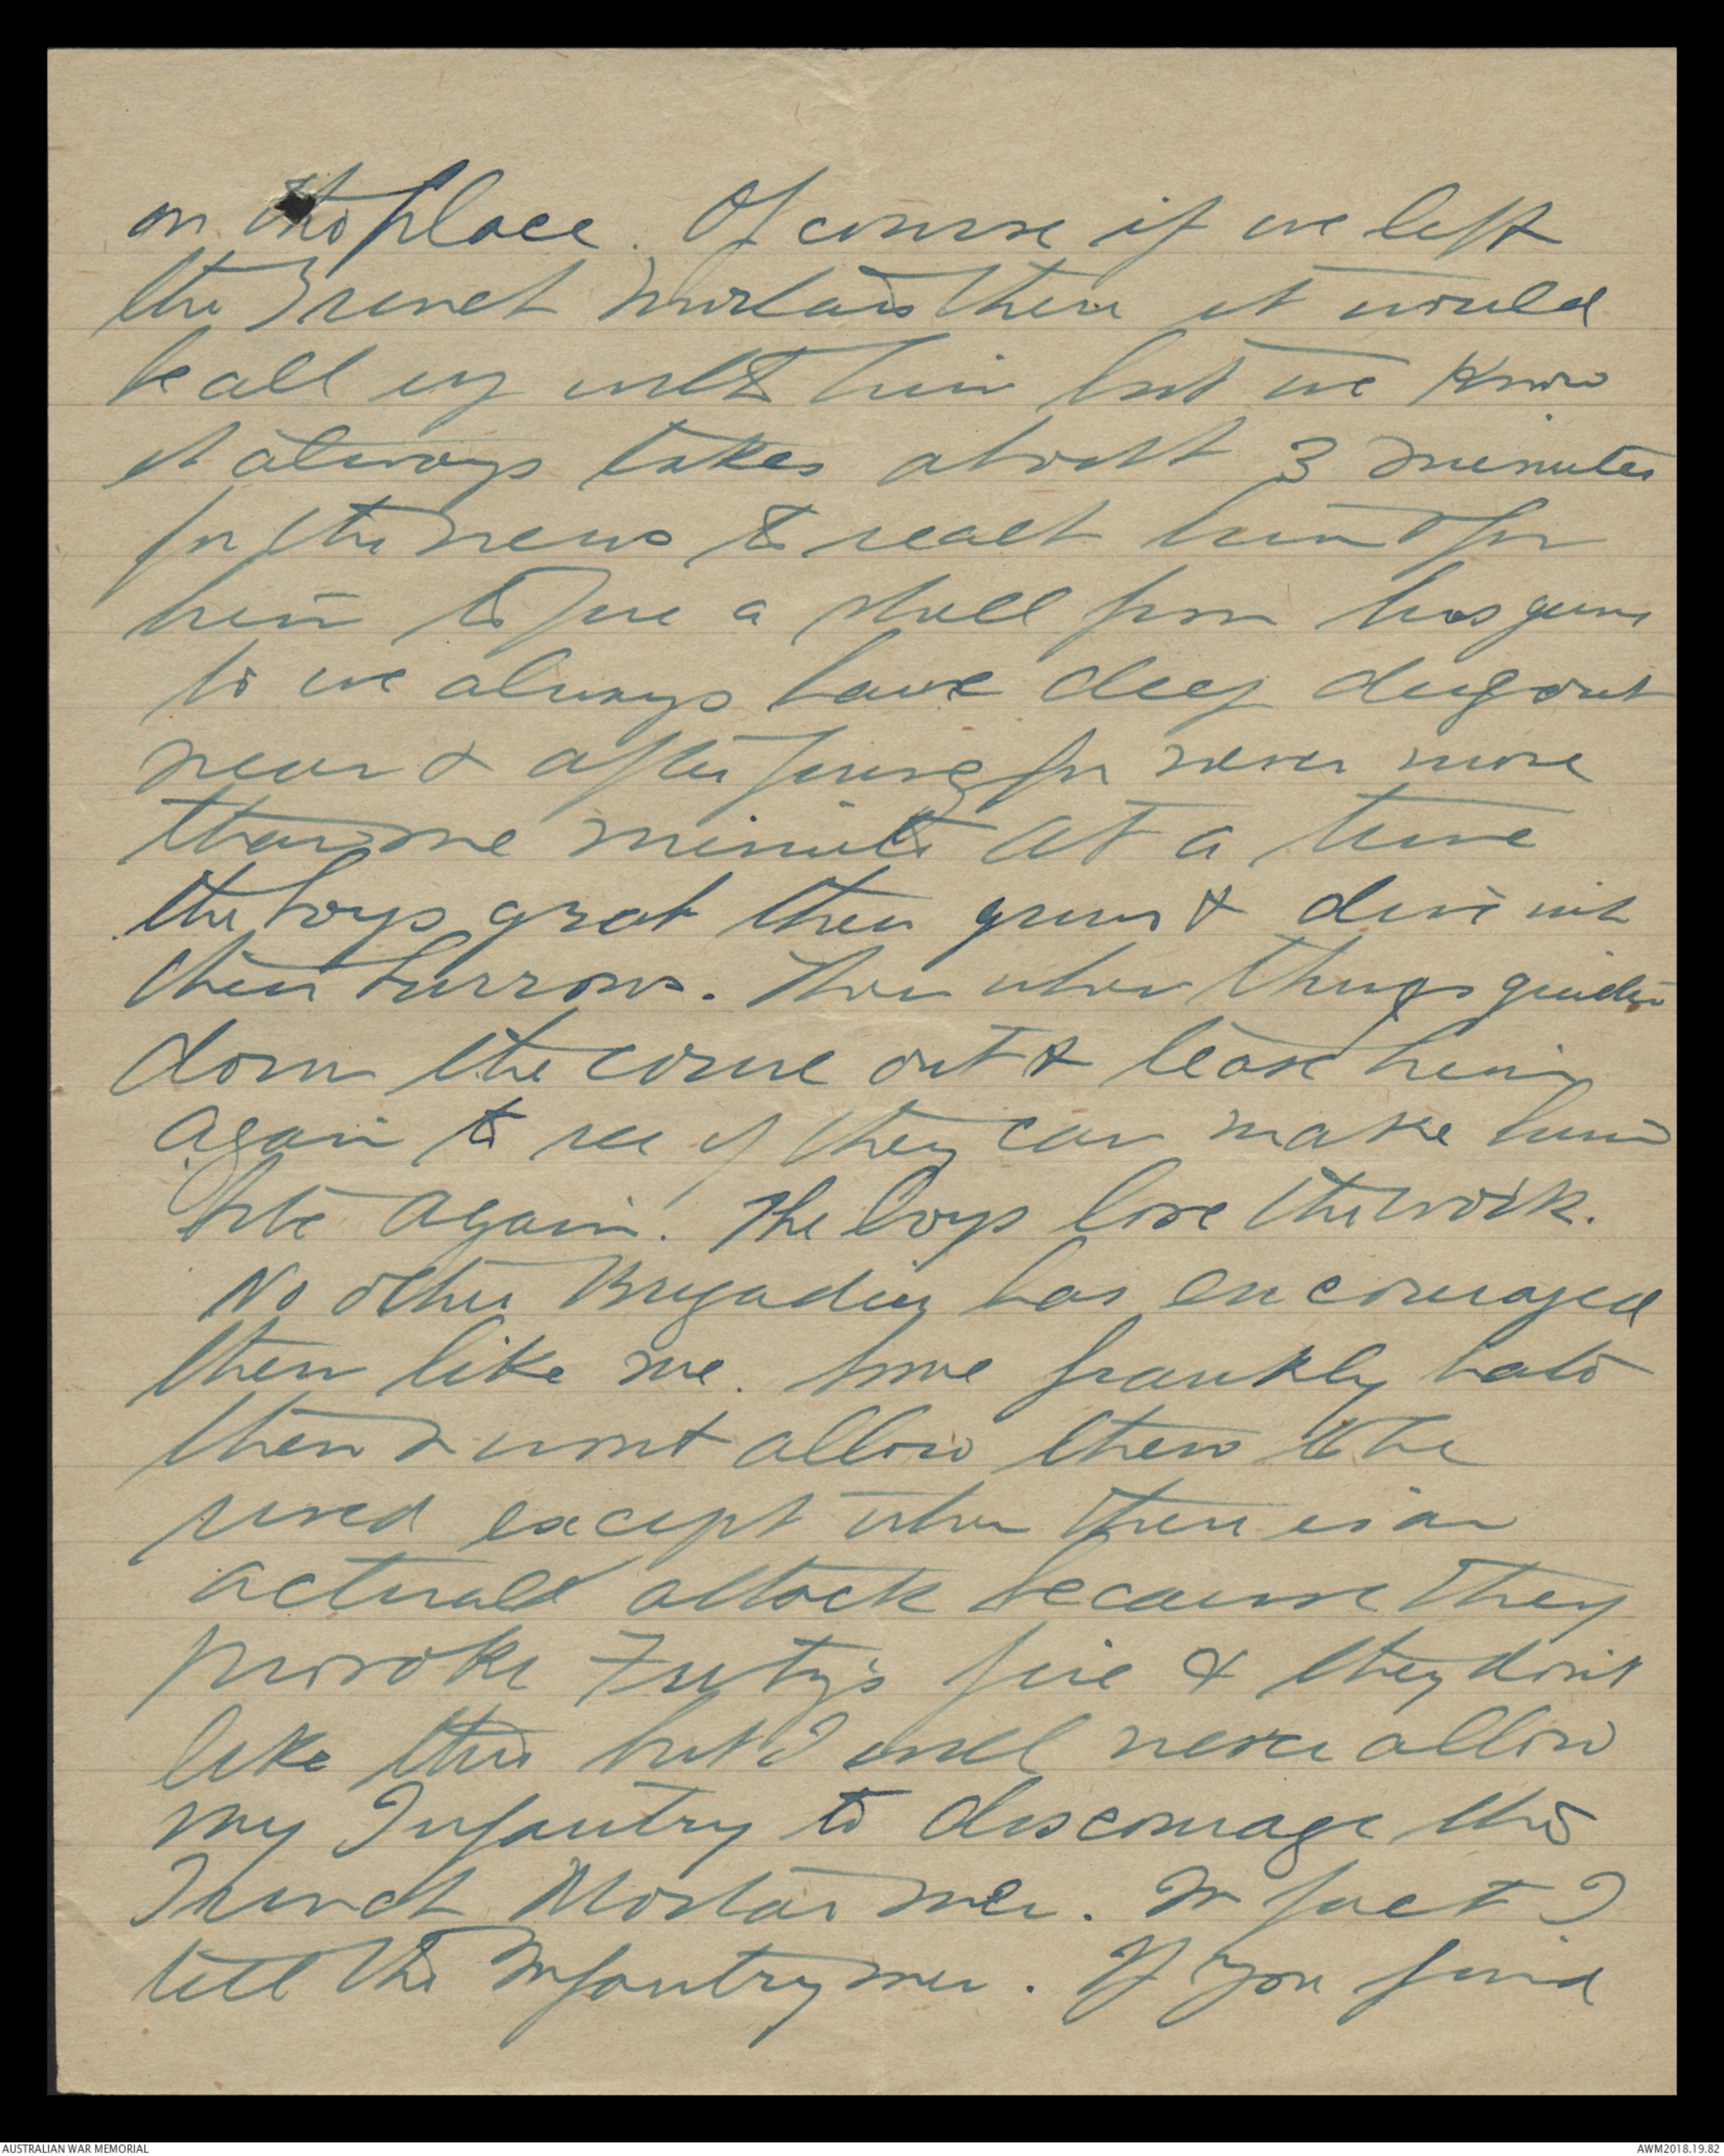 on the place. Of course if we left
the Trench Mortars there it would
be all up with them but we know
it always takes about 3 minutes
for the news to reach him & for
him to fire a shell from his guns
so we always have deep dugout
near & after firing for never more
than one minute at a time
the boys grab their guns & dive into
their burrows. Then when things quieten
down the come out & tease him
again to see if they can make him
bite again. The boys love the work.
No other Brigadier has encouraged
them like me. Some frankly hate
them & wont allow them to be
used except when there is an
actual attack because they
provoke Fritz's fire & they dont
like this but I will never allow
my Infantry to discourage the
Trench Mortar men. In fact I
tell the Infantry men. If you find
AUSTRALIAN WAR MEMORIAL
AWM2018.19.82